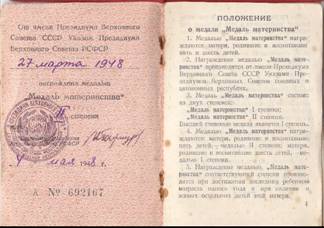 От имени Президиума Верховного
Совета СССР Указом Президиума
Верховного Совета РСФСР
27 марта 1948
награждена медалью
"Медаль материнства"
II степени
мая 1948 г.
А № 692167
ПОЛОЖЕНИЕ
о медали „Медаль материнства“
1. Медалью „Медаль материнства“ на-
граждаются матери, родившие и воспитав-
шие пять и шесть детей.
2. Награждение медалью „Медаль мате-
ринства“ производится от имени Президиума
Верховного Совета СССР Указами Прези-
диумов Верховных Советов союзных и
автономных республик.
3. Медаль „Медаль материнства“ состоит
из двух степеней:
„Медаль материнства“ I степени;
„Медаль материнства“ II степени.
Высшей степенью медали является I степень.
4. Медалью „Медаль материнства“ награж-
даются: матери, родившие и воспитавшие
пять детей, — медалью II степени; матери,
родившие и воспитавшие шесть детей, —
медалью I степени.
5. Награждение медалью „Медаль мате-
ринства“ соответствующей степени произво-
дится при достижении последним ребенком
возраста одного года и при наличии в
живых остальных детей этой матери.